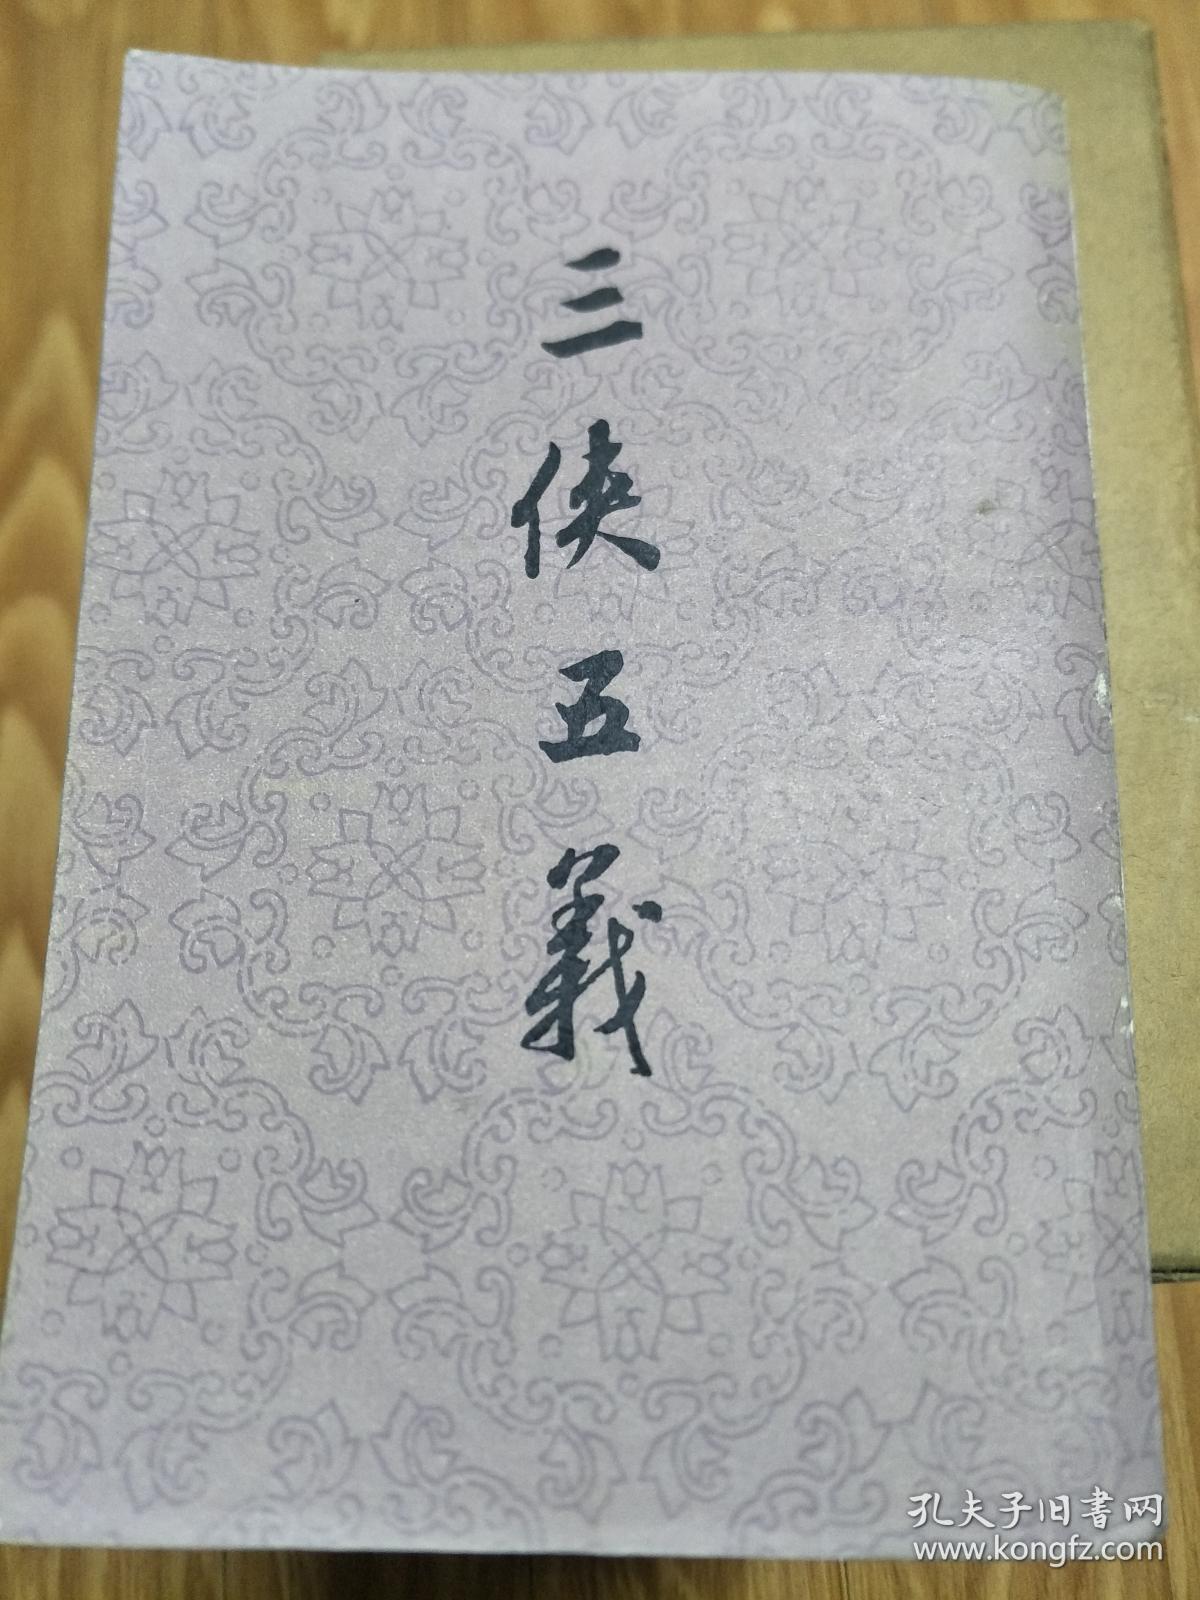 三侠五義
孔夫子旧書网
www.kongfz.com